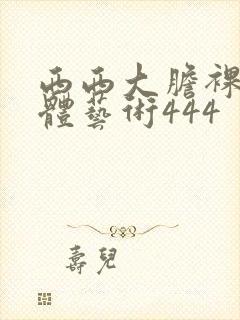 西西大膽裸
體藝術444
壽兒